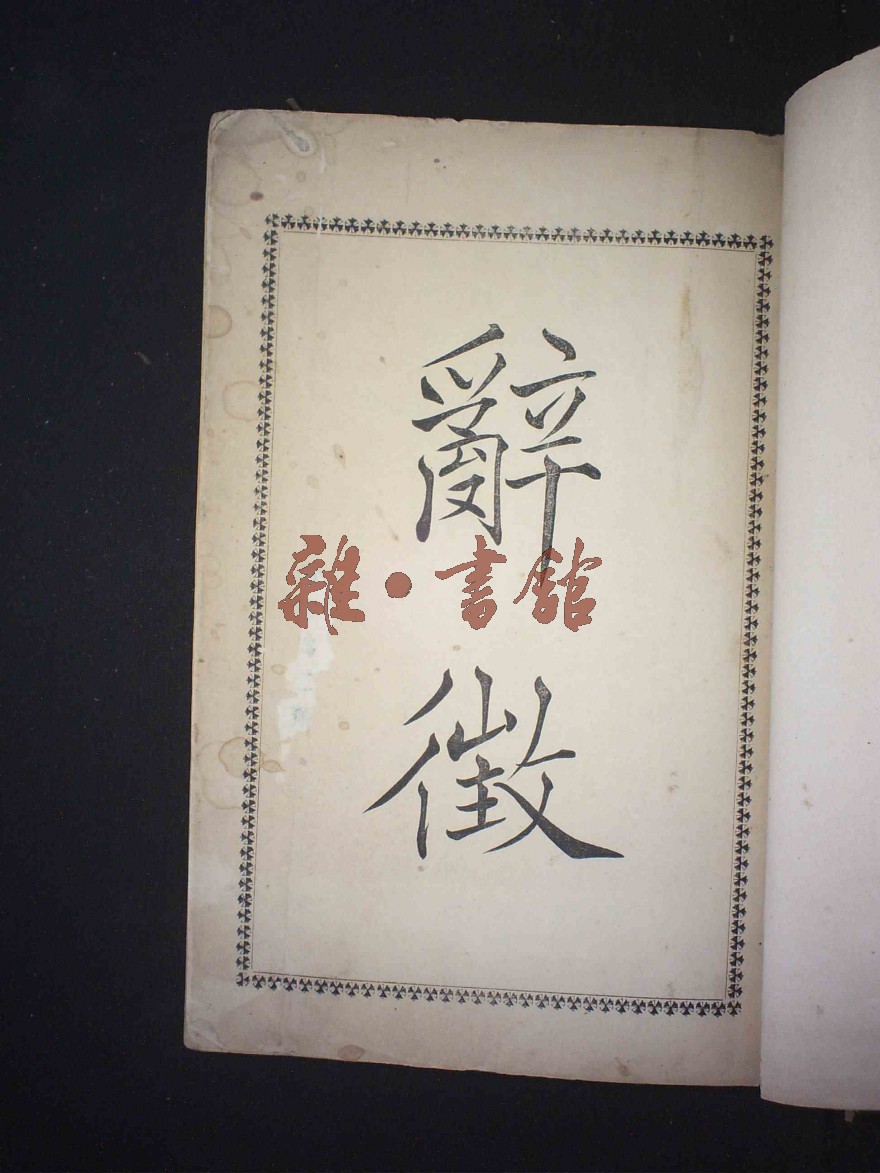 辭
雜·書館
徵